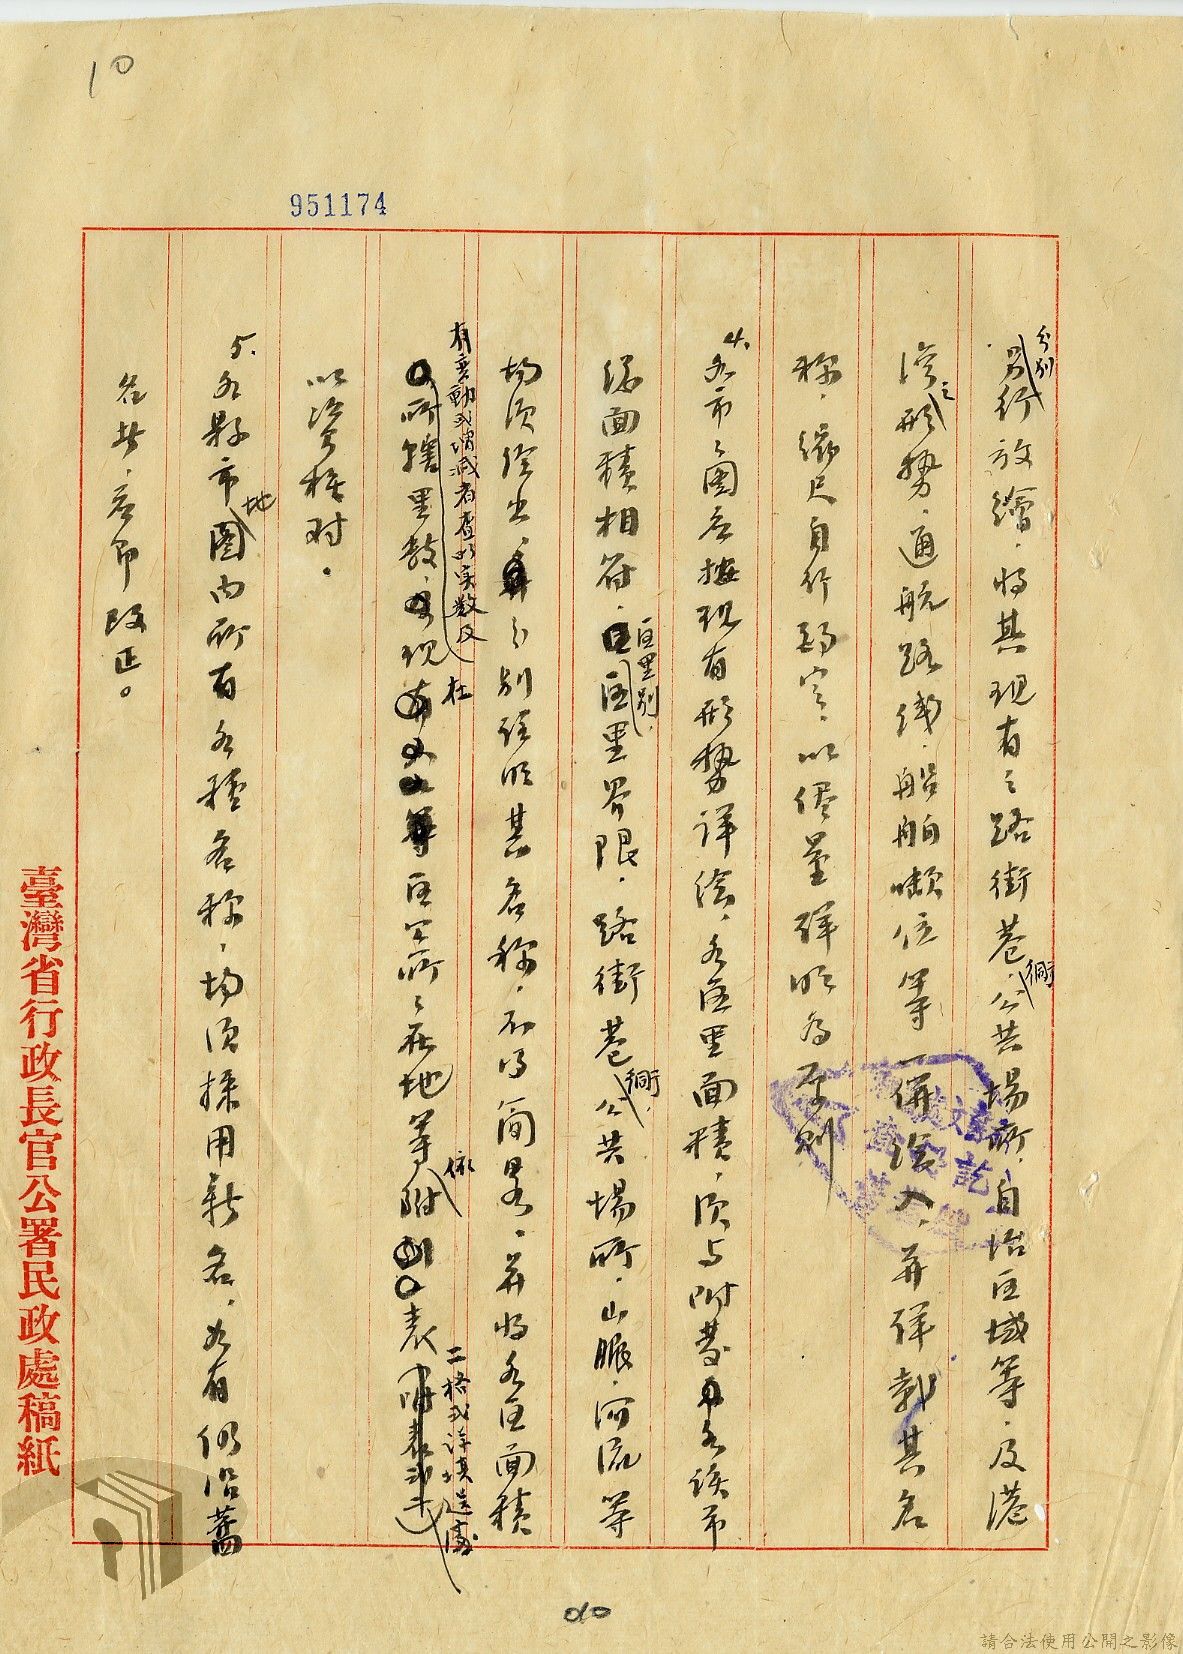 10
951174
分別
另行放繪，將其現有之路街巷衖、公共場所、自治區域等，及港
灣之形勢、通航路線、船舶噸位等一併繪入，並詳載其名
稱，縮尺自行酌定，以儘量詳明為原則
4.各市之圖應按現有形勢詳繪，各區里面積，須與附發各該市
總面積相符，區里別，區里界限，路街巷衖，公共場所，山脈，河流等
均須繪出，分別註明其名稱，不得簡畧，並將各區面積
有變動或增減者查明實數及
所轄里數，現在區公所之在地等依附表
二格式詳填送處
以資核對。
5.各縣市地圖內所有各種名稱，均須採用新名，如有仍沿舊
名者，應即改正。
臺灣省行政長官公署民政處稿紙
請合法使用公開之影像